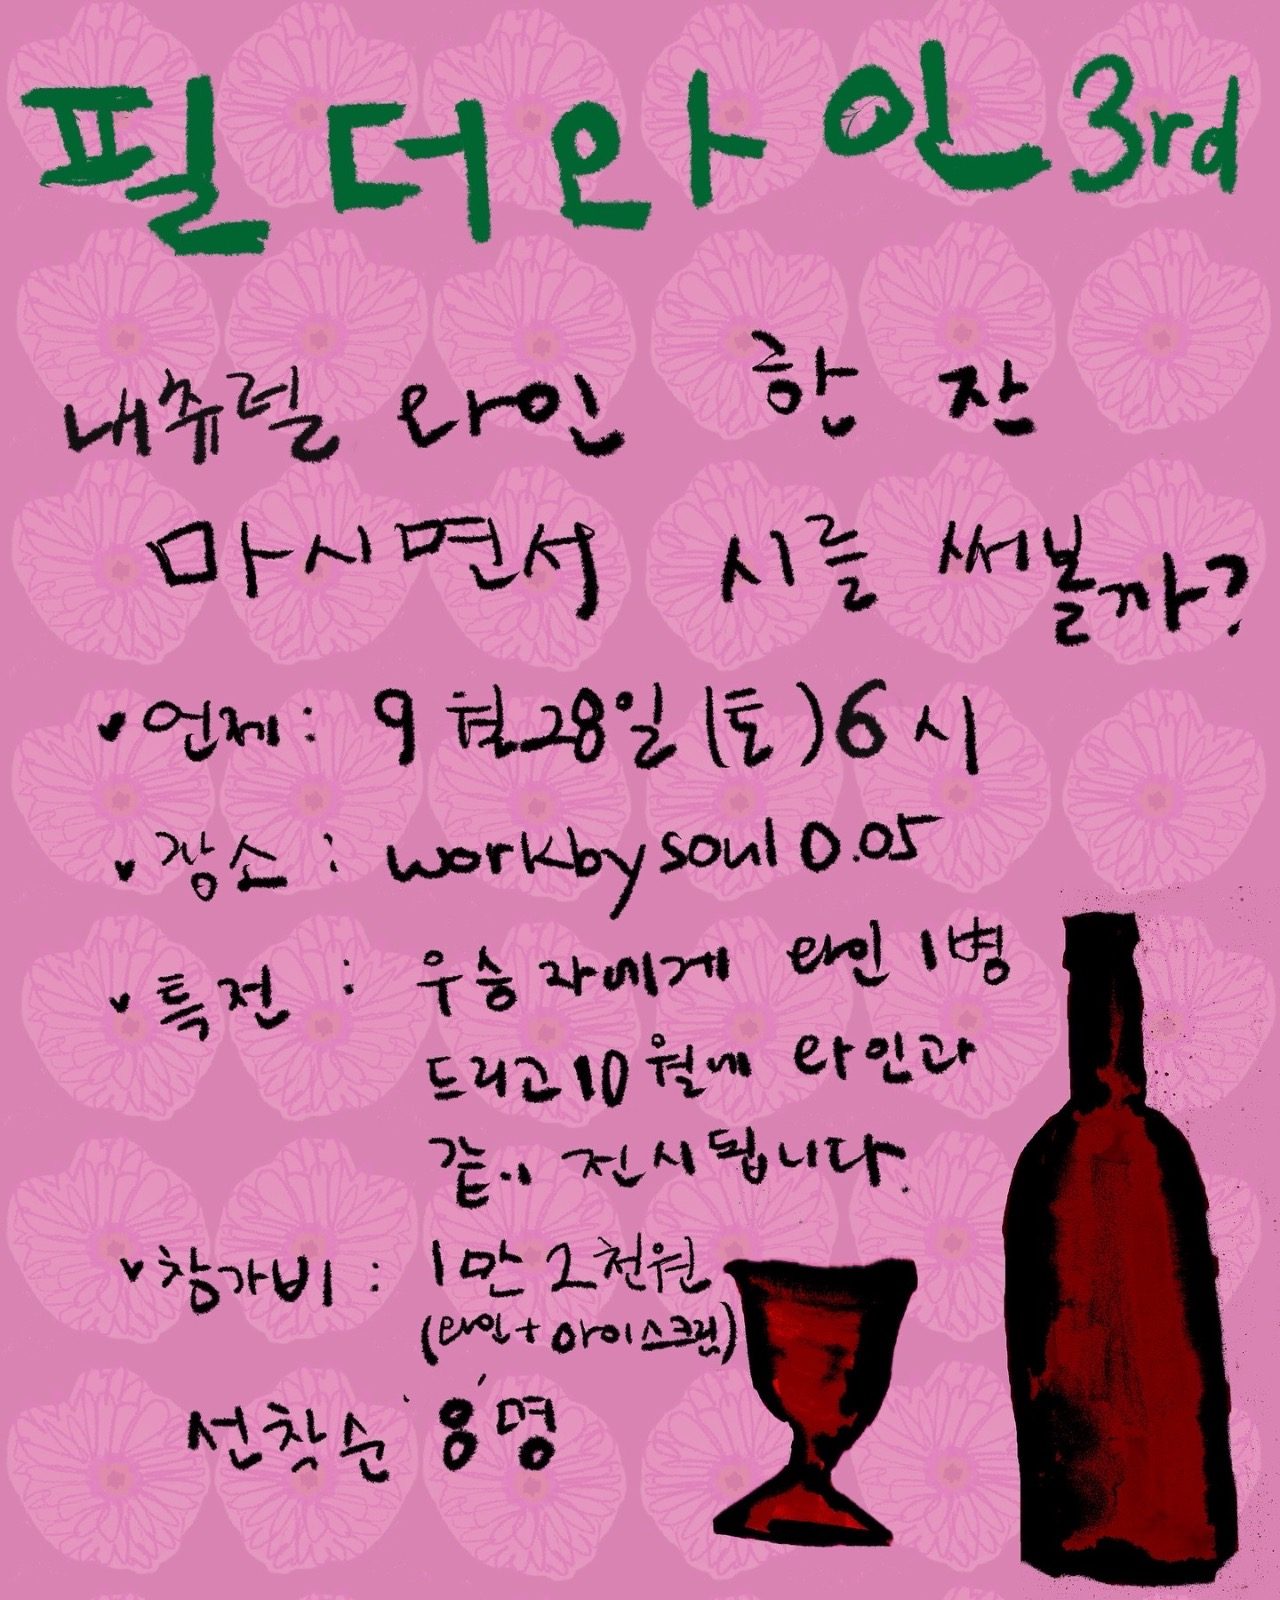 필더와인 3rd
내츄럴 와인 한 잔
마시면서 시를 써볼까?
언제: 9월28일(토)6시
장소: workbysoul 0.05
특전: 우승자에게 와인 1병
드리고 10월에 와인과
같이 전시됩니다.
참가비: 1만 2천원
(와인+아이스크림)
선착순 '8'명